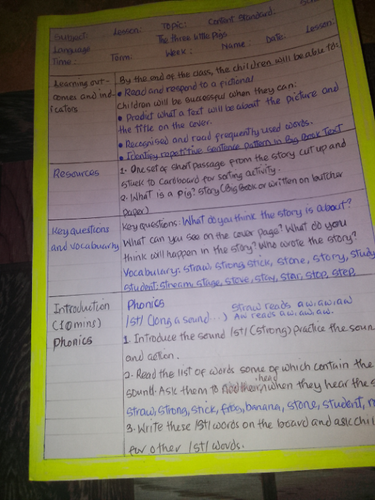 Subject: Lesson: Topic: Content Standard:
Language The Three Little Pigs
Time: Term: Week: Name: Date: Lesson:
Learning out-
comes and ind-
icators
By the end of the class, the children will be able to:
• Read and respond to a fictional
Children will be successful when they can:
• Predict what a text will be about the picture and
the title on the cover.
• Recognised and read frequently used words.
• Identify repetitive sentence pattern in Big Book Text
Resources
1. One set of short passage from the story cut up and
stuck to Cartboard for sorting activity.
2. What is a pig? story (Big Book or written on butcher
paper)
Key questions
and vocabulary
Key questions: What do you think the story is about?
What can you see on the cover page? What do you
think will happen in the story? Who wrote the story?
Vocabulary: straw strong, stick, stone, story, study
student, stream, stage, stove, stay, star, stop, step
Introduction
(10mins)
Phonics
Phonics
/st/ (long a sound...) Straw reads aw.aw.aw
Aw reads aw.aw.aw.
1. Introduce the sound /st/ (strong) practice the soun
and action.
2. Read the list of words some of which contain the
sound. Ask them to head when they hear the s
straw, strong, stick, frog, banana, stone, student, m
3. Write these /st/ words on the board and ask chil
for other /st/ words.